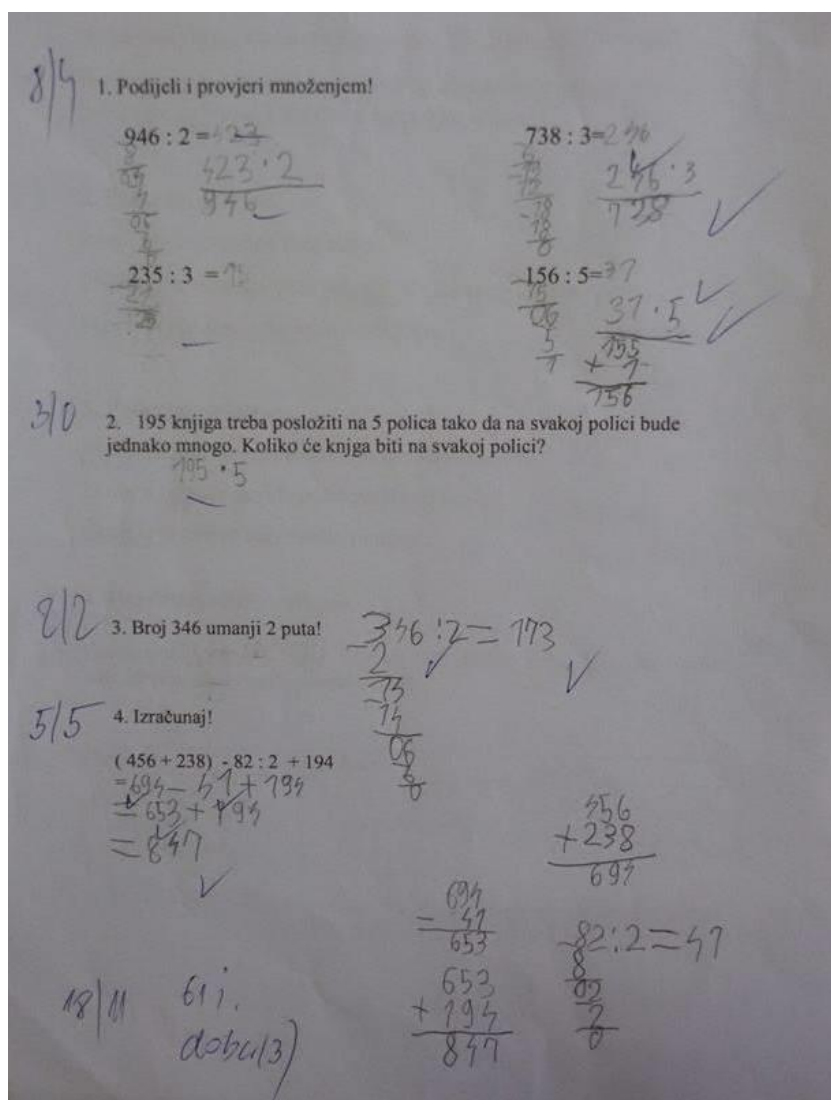 8/4 1. Podijeli i provjeri množenjem!
946 : 2 = 423
8
423 · 2
946
738 : 3= 246
6
-13
12
-18
18
0
246 · 3
738
235 : 3 =
-21
25
156 : 5= 31
-15
06
5
1
31 · 5
155
+ 1
156
3/0 2. 195 knjiga treba posložiti na 5 polica tako da na svakoj polici bude
jednako mnogo. Koliko će knjga biti na svakoj polici?
195 · 5
2/2 3. Broj 346 umanji 2 puta!
346 : 2 = 173
-2
-14
14
06
6
0
5/5 4. Izračunaj!
( 456 + 238) - 82 : 2 + 194
=694 - 41 + 194
= 653 + 194
= 847
456
+238
694
694
- 41
653
-82 : 2 = 41
8
02
2
0
653
+ 194
847
18/11 61 j.
dobar(3)